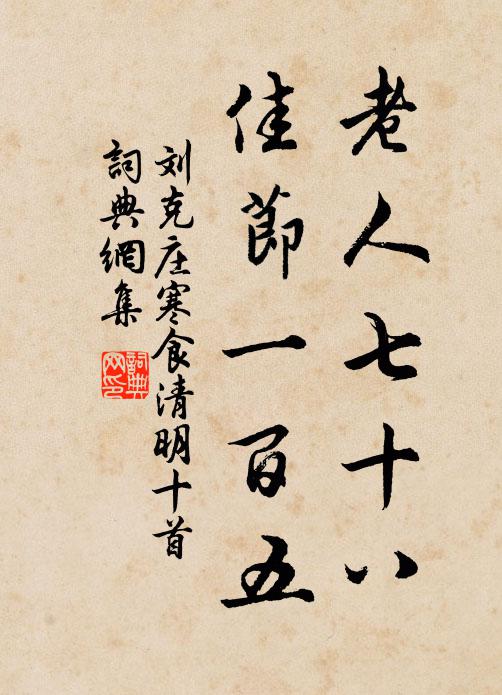 老人七十八
佳節一百五
刘克庄寒食清明十首
詞典網集
詞典网印